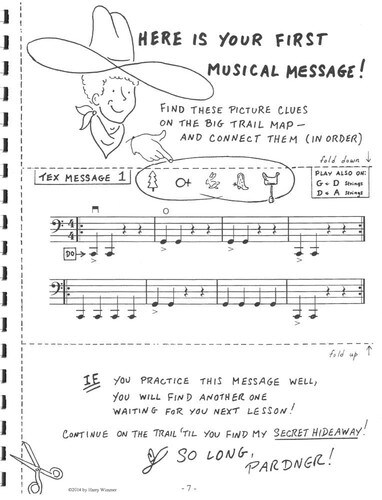 HERE IS YOUR FIRST
MUSICAL MESSAGE!
FIND THESE PICTURE CLUES
ON THE BIG TRAIL MAP —
AND CONNECT THEM (IN ORDER)
fold down
TEX MESSAGE 1
PLAY ALSO ON:
G + D Strings
D + A Strings
DO
fold up
IF YOU PRACTICE THIS MESSAGE WELL,
YOU WILL FIND ANOTHER ONE
WAITING FOR YOU NEXT LESSON!
CONTINUE ON THE TRAIL 'TIL YOU FIND MY SECRET HIDEAWAY!
SO LONG,
PARDNER!
©2014 by Harry Wimmer
- 7 -